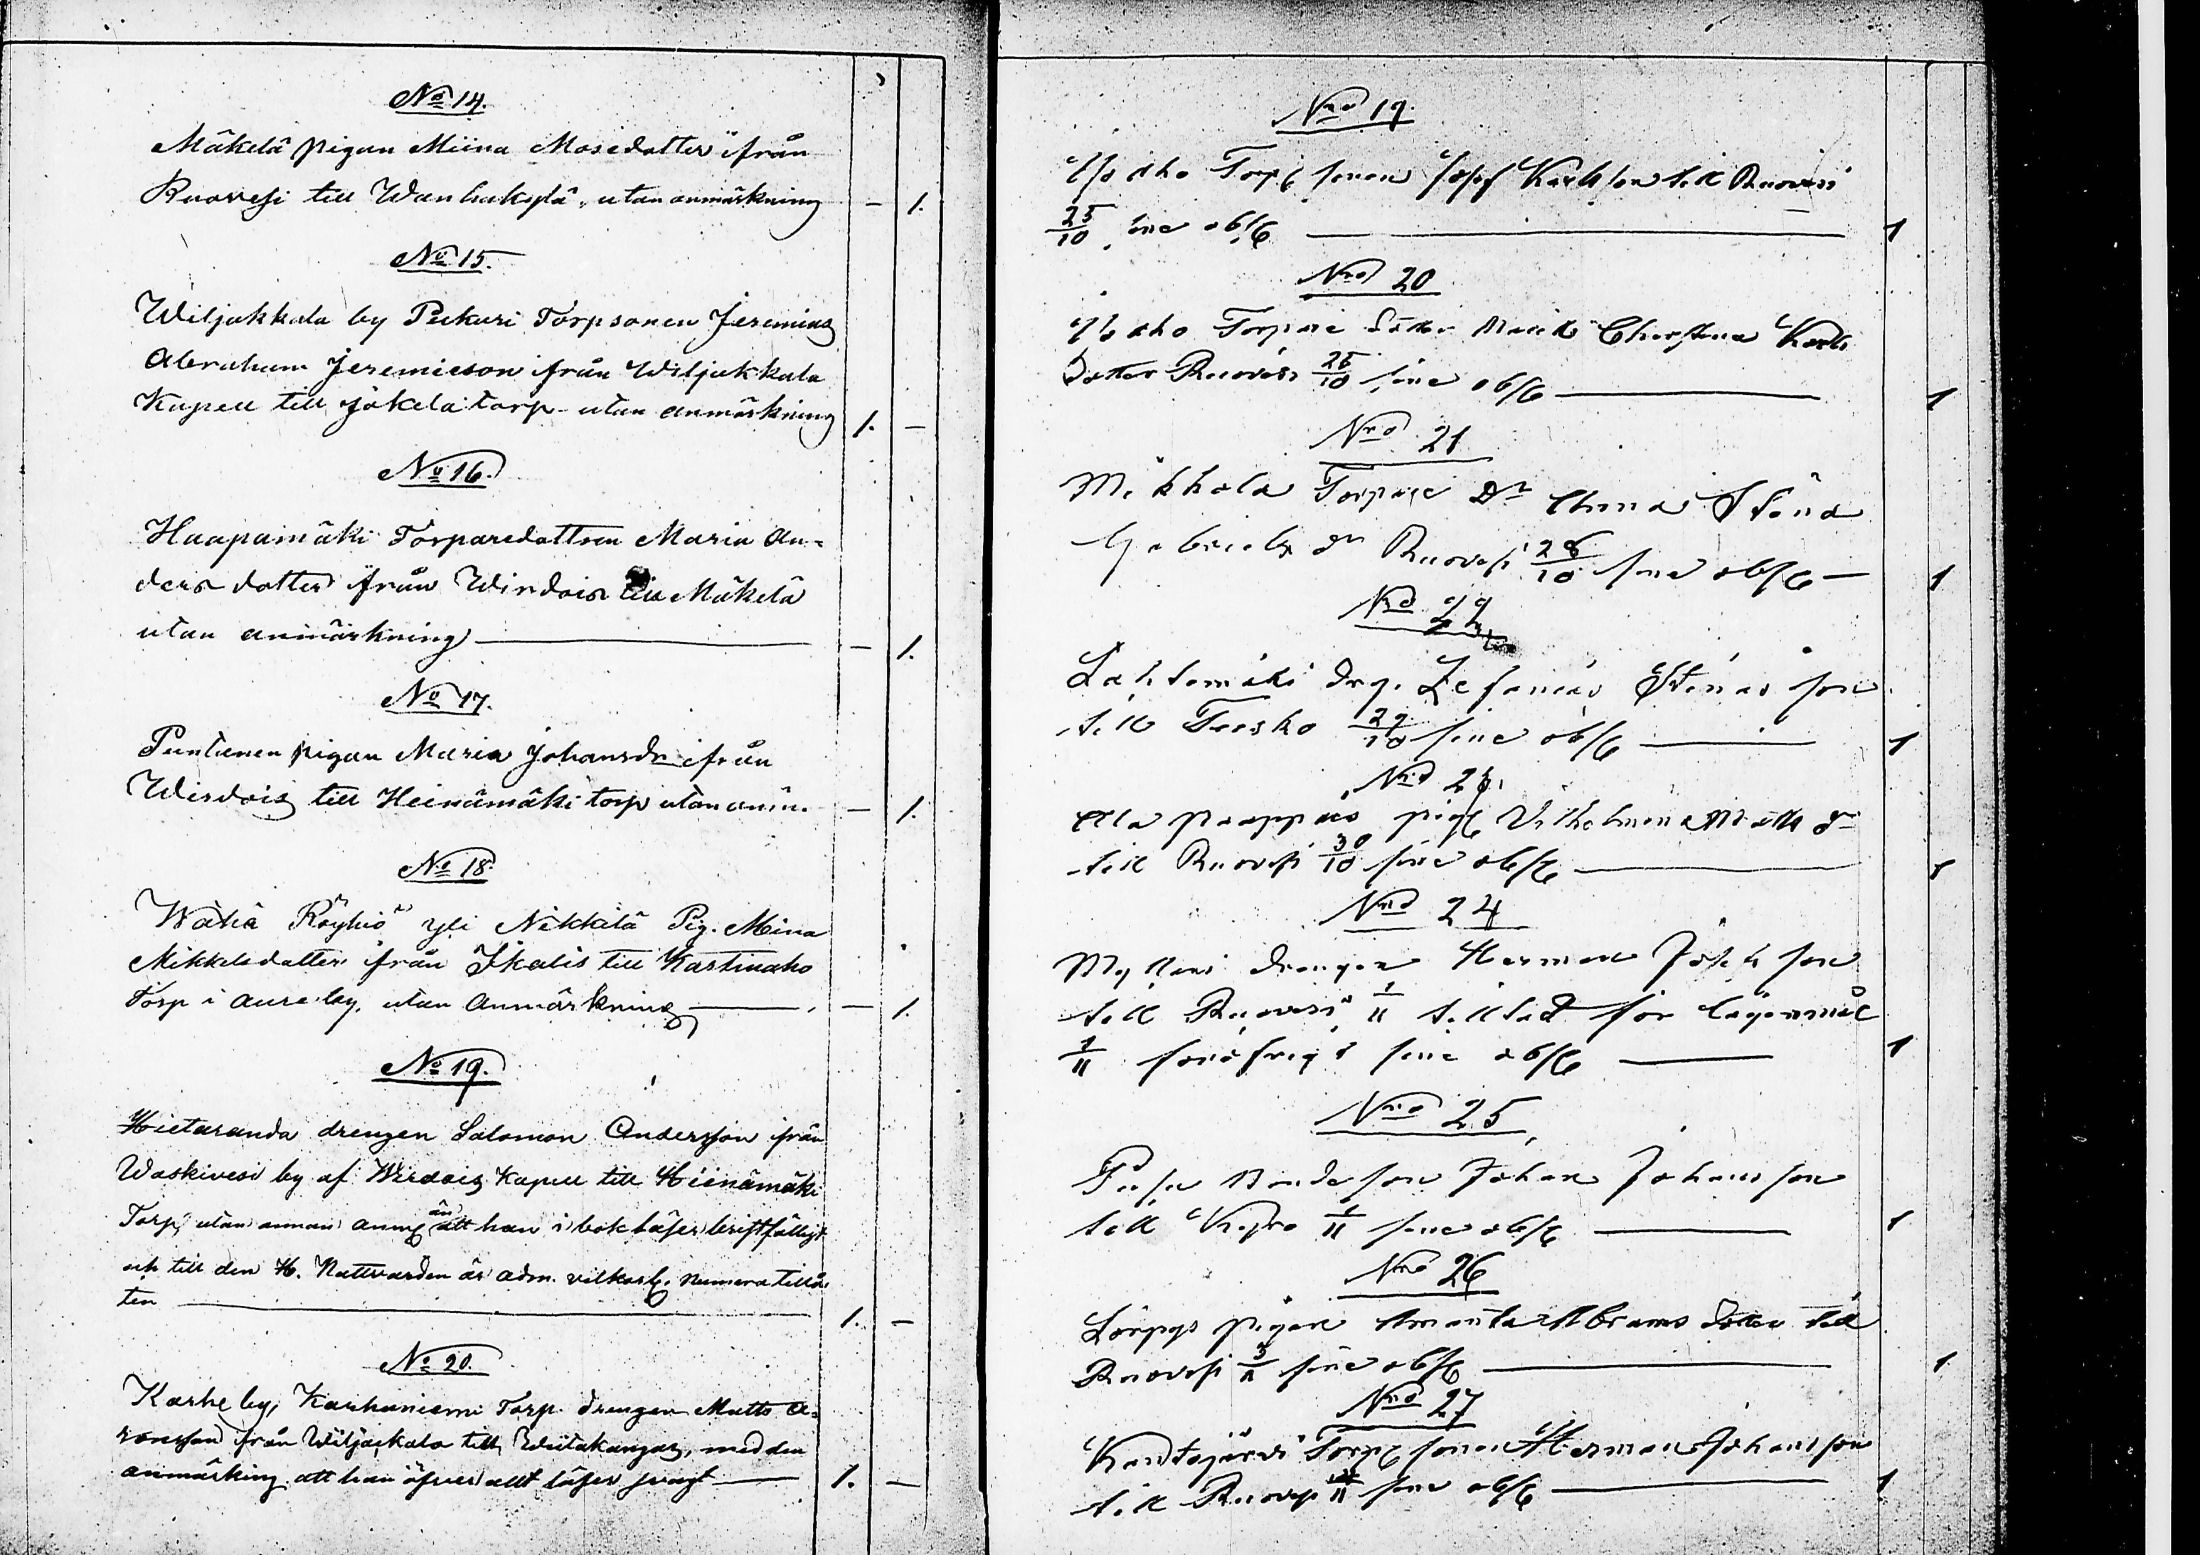 No 14.
Mäkelä pigan Miina Mosesdotter ifrån
Ruovesi till Wanhakylä, utan anmärkning — 1.
No 15.
Wiljakkala by Pekuri Torpsonen Jeremias
Abraham Jeremieson ifrån Wiljakkala
Kapell till Jokela torp utan anmärkning 1. —
No 16.
Haapamäki Torparedottren Maria An-
ders dotter ifrån Wirdois till Mäkelä
utan anmärkning — 1.
No 17.
Puntanen pigan Maria Johansdr ifrån
Wirdois till Heinämäki torp utan anm. — 1.
No 18.
Wähä Röyhiö Yli Nikkilä Pig. Miina
Mikkelsdotter ifrån Ikalis till Kastinaho
Torp i Aure by, utan Anmärkning — 1.
No 19.
Hietaranda drengen Salomon Andersson ifrån
Waskivesi by af Wirdois Kapell till Heinämäki
Torp, utan annan anm än att han i bok läser bristfälligt
och till den H. Nattvarden är adm. vilkorl. numera tillå-
ten 1. —
No 20.
Karhe by, Karhuniemi Torp. drengen Matts A-
ronsson ifrån Wiljakkala till Wiitakangas, med den
anmärkning att han öfver allt läser svagt 1. —
Nro 19
Torp sonen Josef Karlsson till Ruovesi
25/10 sine obs 1
Nro 20
Torpare Dotter Maria Christina Karls
Dotter Ruovesi 25/10 sine obs 1
Nro 21
Mikkola Torpare Dr Anna Stina
Gabriels dr Ruovesi 28/10 sine obs — 1
Nro 22
Lahtomäki Drg. Zefanias son
till Teisko 29/10 sine obs 1
Nro 23.
Ala Paappas pig Vilhelmina Matts dr
till Ruovesi 30/10 sine obs 1
Nro 24
Myllari drengen Herman son
till Ruovesi 1/11 för lägersmål
1/11 sine obs 1
Nro 25
Bonde son Johan Johansson
till Kyro 1/11 sine obs 1
Nro 26
pigan Amanda Abrams Dotter till
Ruovesi 3/11 sine obs 1
Nro 27
Kandojärvi Torp sonen Herman Johansson
till Ruovesi sine obs 1